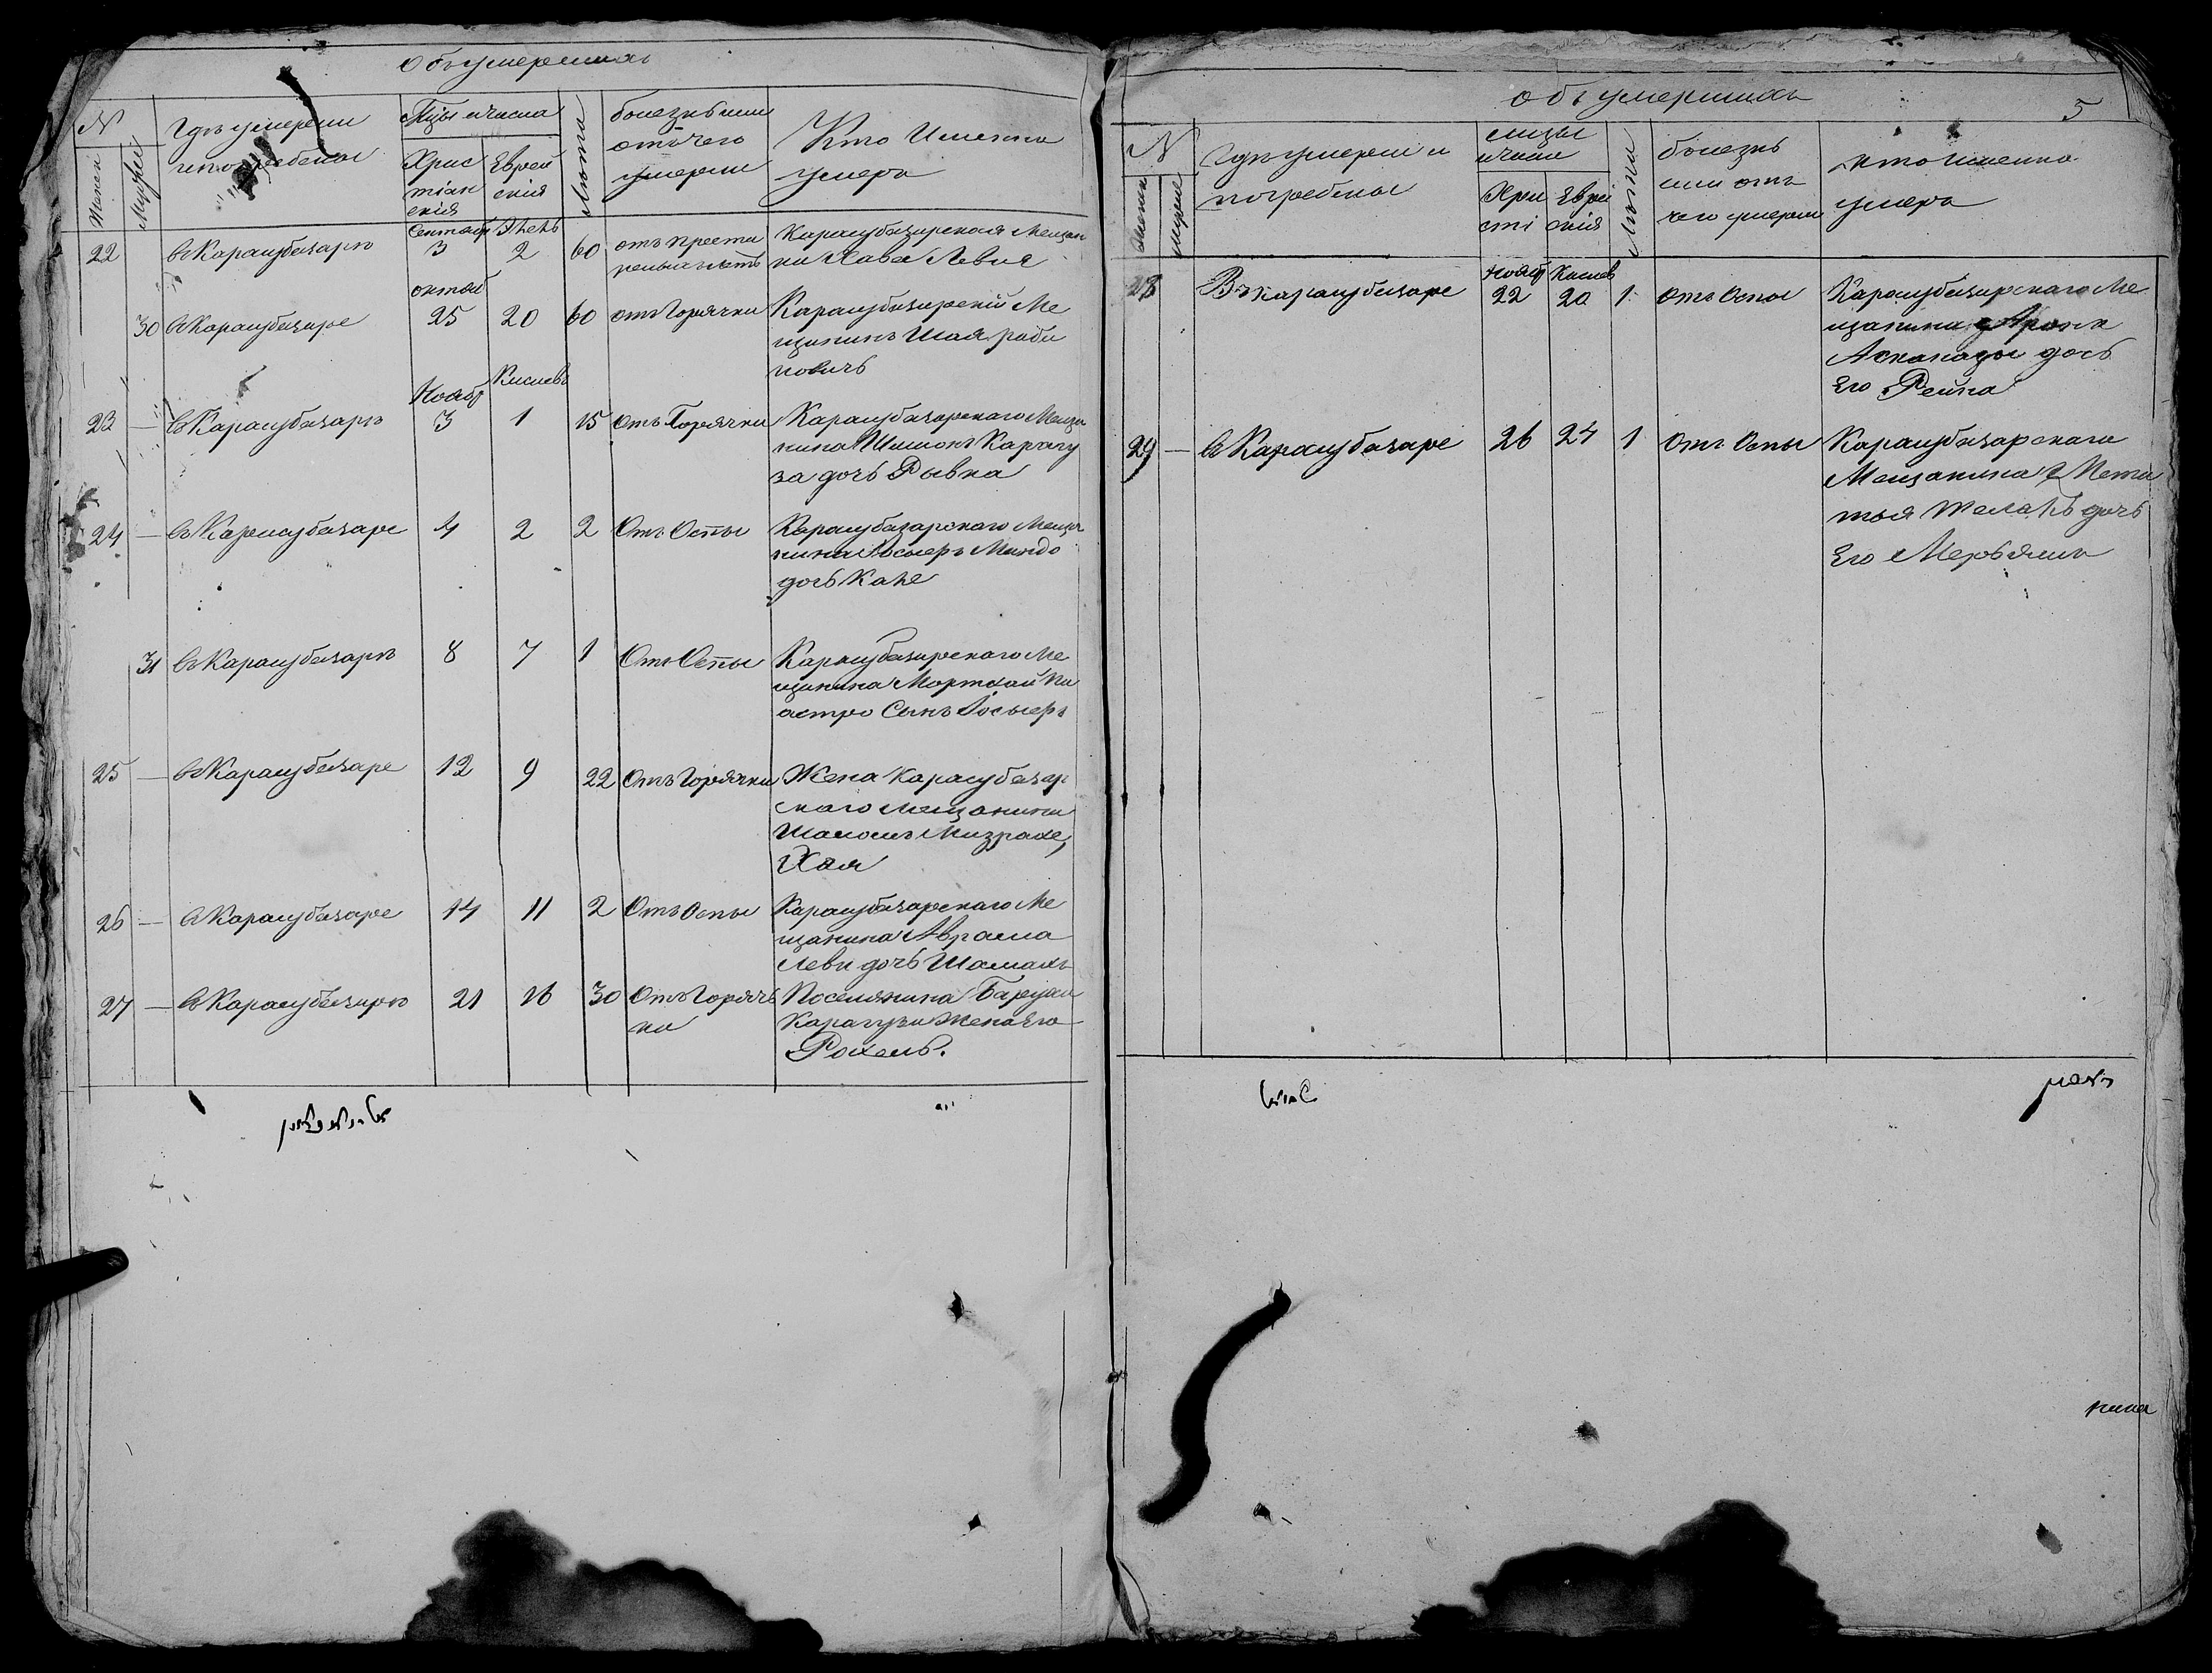 объ умершихъ
N
Женск
Мужей
Гдѣ умерли
и погребены
Мѣсы и числа
Хрис
тіан
скія
Еврей
скія
Лѣта
болезнь или
отъ чего
умерли
Кто Именно
умеръ
22
в Карасубазарѣ
Сентябр
3
2
60
отъ
Карасубазарская Мещан
ка Хава Левия
30
в Карасубазаре
октяб
25
20
60
отъ Горячки
Карасубазарскій Ме
щанинъ Шая раби
новичъ
23 —
въ Карасубазарѣ
Нояб
3
Кислевъ
1
15
Отъ Горячки
Карасубазарскаго Меща
нина Шимонъ Карагу
за дочь Рывка
24 —
въ Карасубазаре
4
2
2
Отъ Оспы
Карасубазарскаго Меща
нина Иосыеръ Мандо
дочь Кане
31
въ Карасубазарѣ
8
7
1
Отъ Оспы
Карасубазарскаго Ме
щанина Мортхай Пи
астро Сынъ Іосыеръ
25 —
въ Карасубазаре
12
9
22
Отъ Горячки
Жена Карасубазар
скаго Мещанина
Шаломъ Мизрахе,
Хая
26 —
в Карасубазаре
14
11
2
Отъ Оспы
Карасубазарскаго Ме
щанина Аврама
Леви дочь Шамахъ
27 —
в Карасубазарѣ
21
16
30
Отъ Горяч
ки
Поселянина Барухи
Карагузи Жена Его
Рохель.
объ умершихъ
5
N
Женск
мужей
Гдѣ умерли и
погребены
мѣзы
и числа
Хри
сті
Еврей
скія
Лѣта
болезнь
или отъ
чего умерли
кто именно
умеръ
28
Въ Карасубазаре
Нояб
22
Кислев
20
1
Отъ Оспы
Карасубазарскаго Ме
щанина Арона
Ашканазы дочь
Его Рейна
29 —
в Карасубазаре
26
24
1
Отъ Оспы
Карасубазарскаго
Мещанина
дочь
Его Мерьямъ